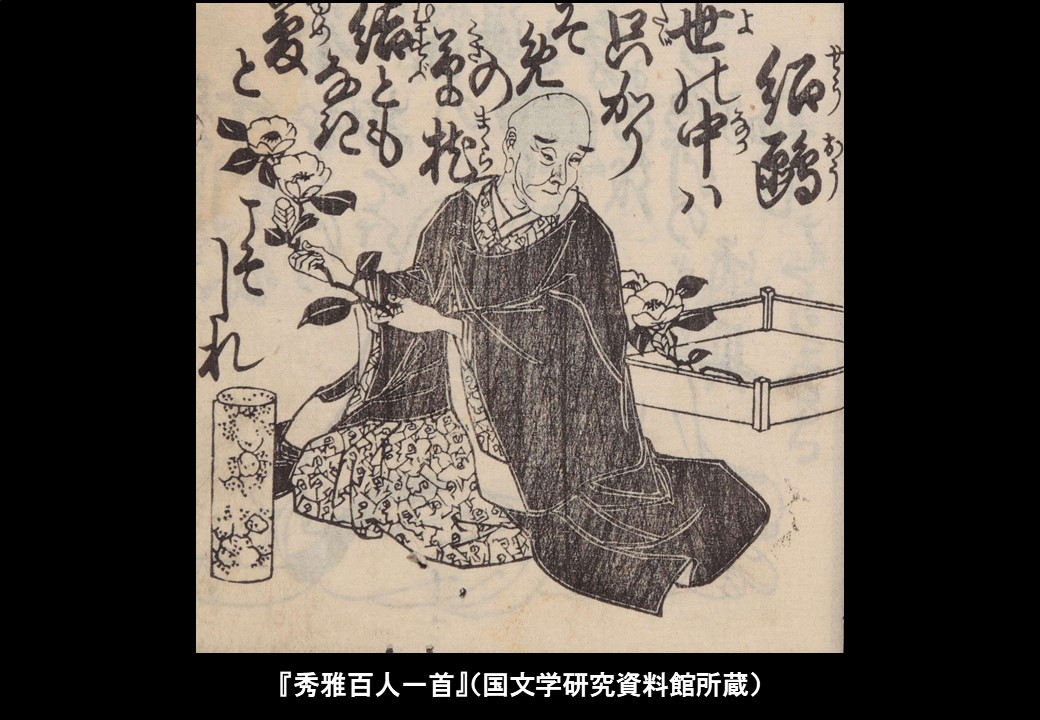 紹鷗
世の中ハ
只かり
そ
免
の
草枕
結とも
なき
夢
と
こそ
しれ
『秀雅百人一首』（国文学研究資料館所蔵）